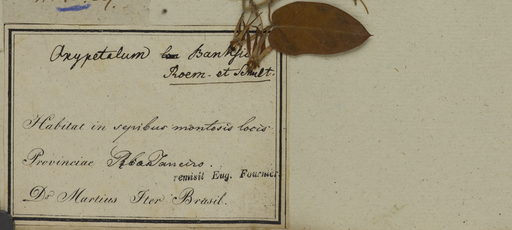 Oxypetalum Banksii
Roem. et Schult.
Habitat in sepibus montosis locis
Provinciae Rio Janeiro.
remisit Eug. Fournier
Dr Martius Iter Brasil.